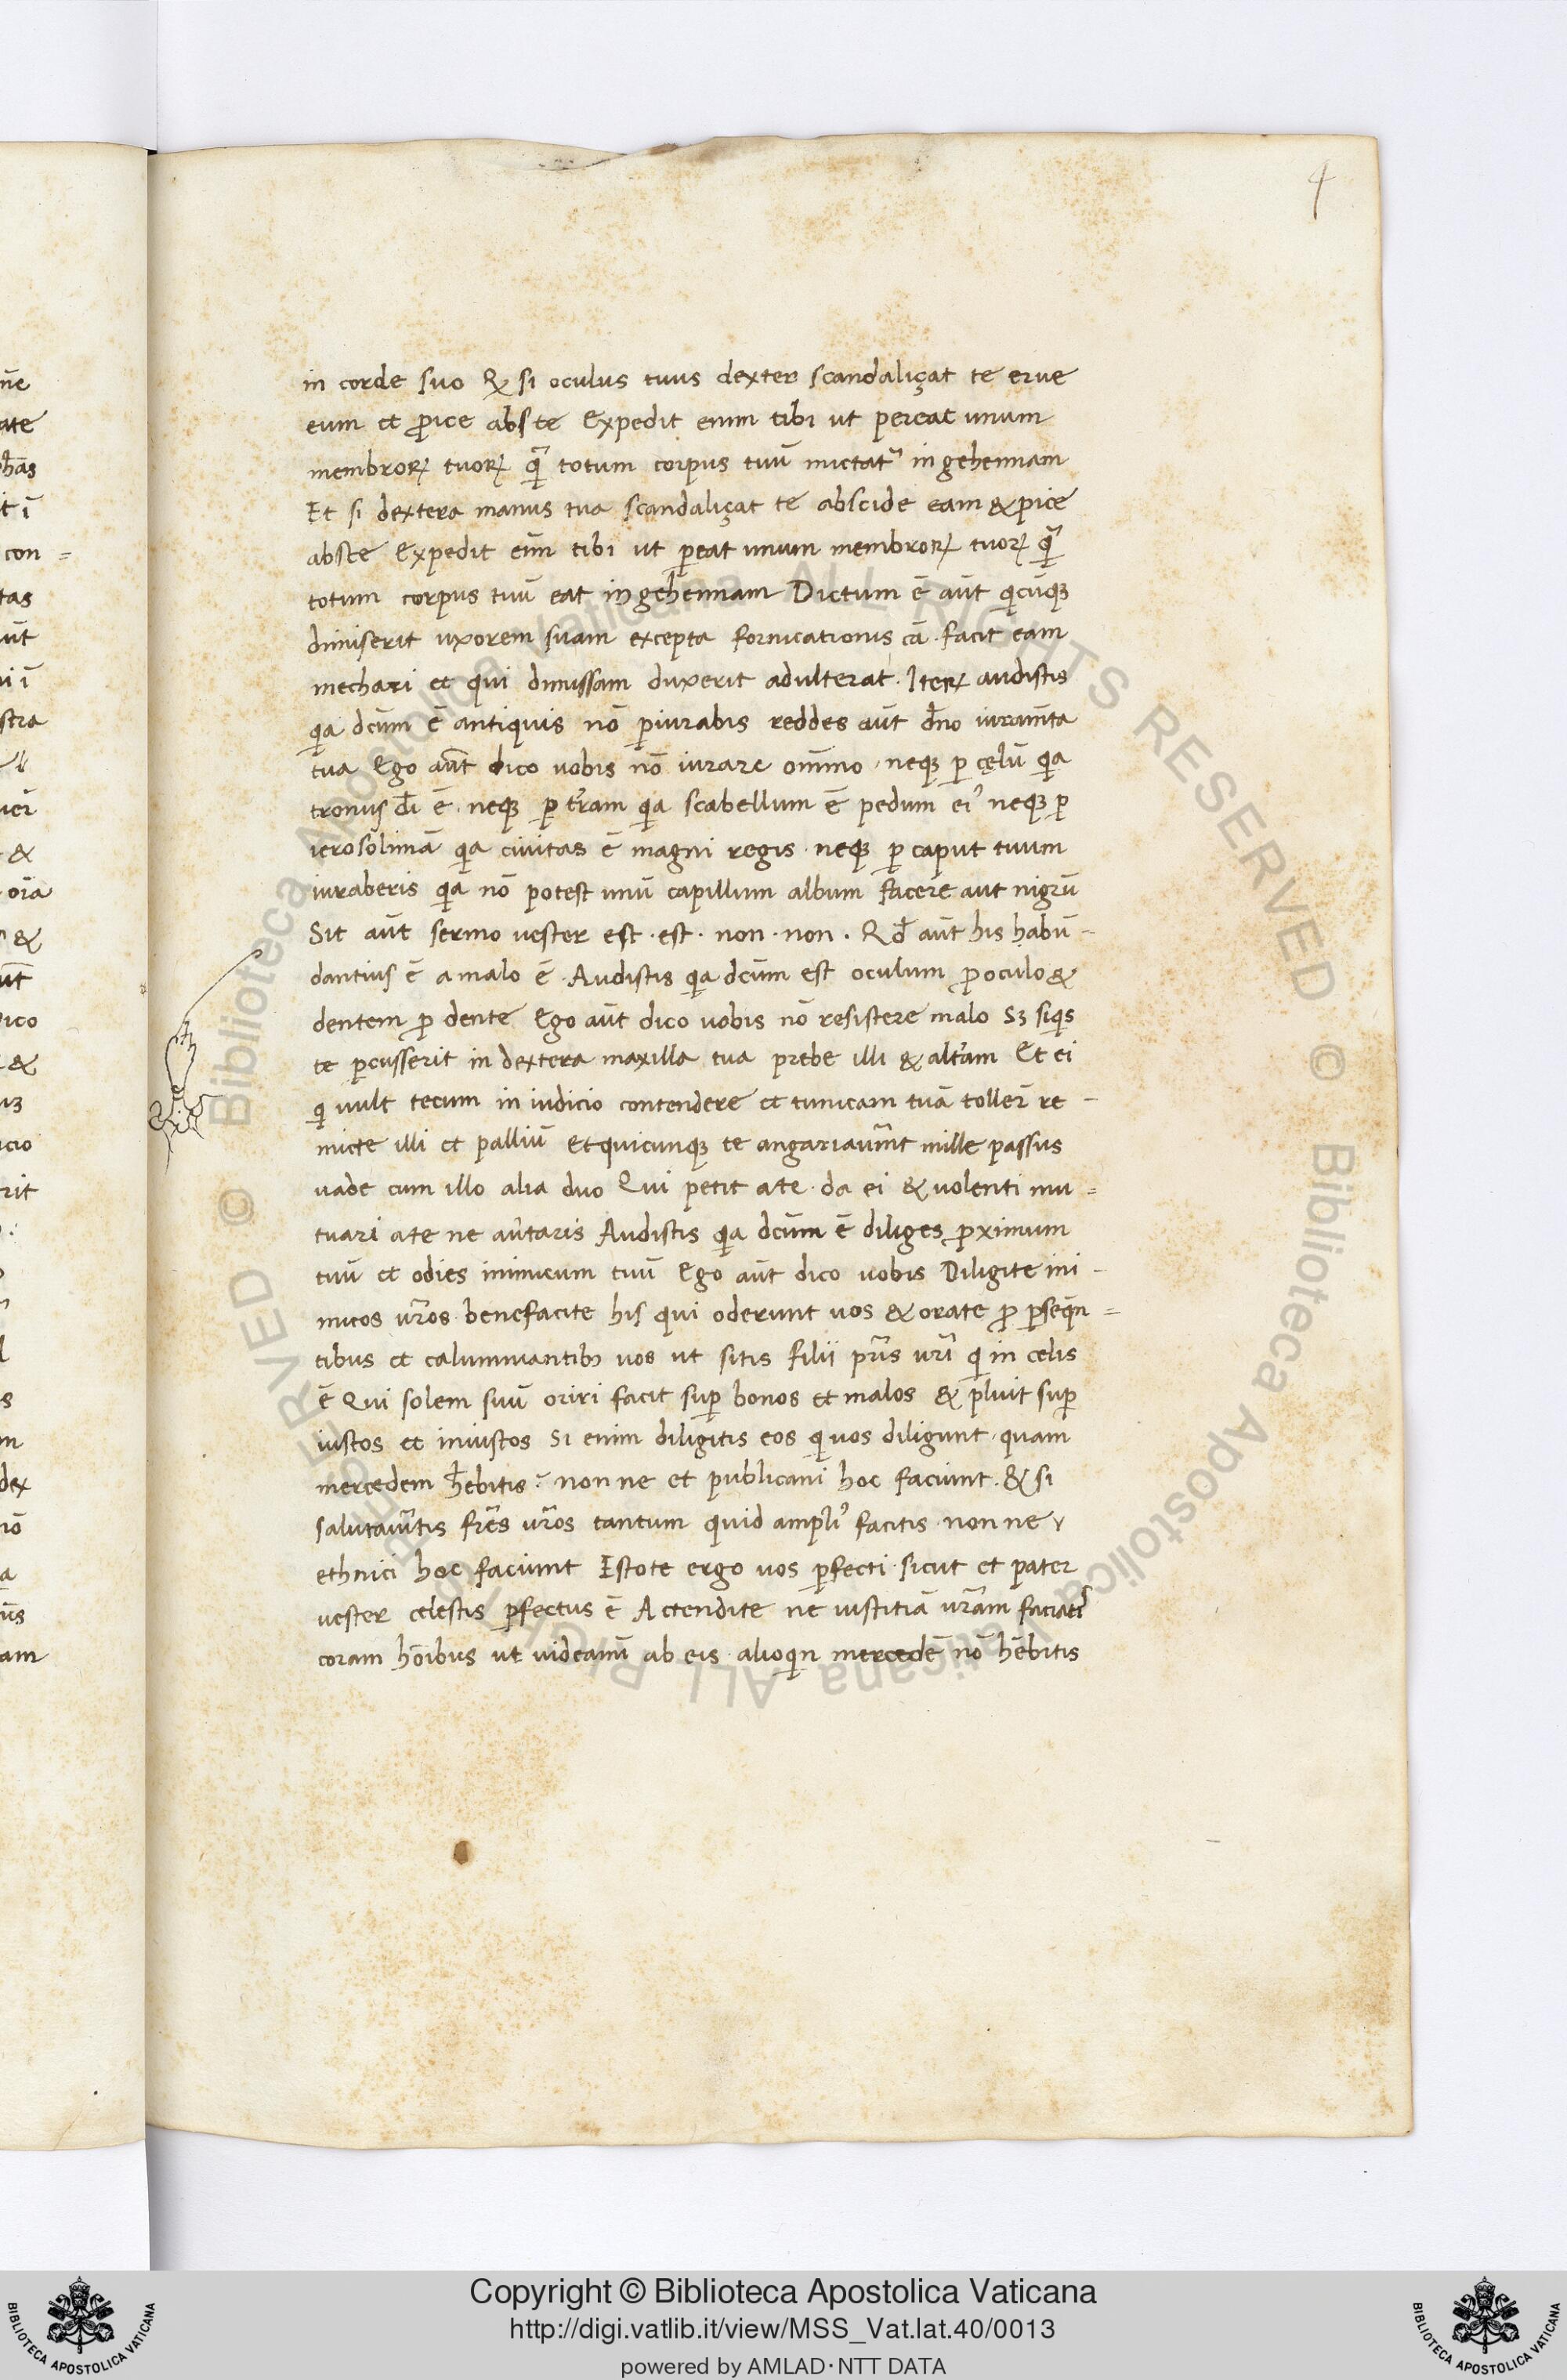 4
in corde suo Qd si oculus tuus dexter scandaliçat te erue
eum et ꝓice abs te Expedit enim tibi ut pereat unum
membroꝝ tuoꝝ ꝙ̃ totum corpus tuū mictat᷑ in gehennam
Et si dextera manus tua scandaliçat te abscide eam & ꝓice
abs te Expedit eīm tibi ut ꝑeat unum membroꝝ tuoꝝ ꝙ̃
totum corpus tuū eat in gehennam Dictum ē aūt qicūqꝫ
dimiserit uxorem suam excepta fornicationis cā · facit eam
mechari et qui dimissam duxerit adulterat · Iteꝝ audistis
qia dcūm ē antiquis nō ꝑiurabis reddes aūt dn̄o iuram̄ta
tua Ego aūt dico uobis nō iurare omnino · neqꝫ ꝑ cęlū qia
tronus dī ē · neqꝫ ꝑ tr̄am qia scabellum ē pedum eiꝰ neqꝫ ꝑ
ierosolimā qia ciuitas ē magni regis · neqꝫ ꝑ caput tuum
iuraberis qia nō potest unū capillum album facere aut nigrū
Sit aūt sermo uester est · est · non · non · Qd̄ aūt his habū-
dantius ē a malo ē · Audistis qia dcūm est oculum ꝓ oculo &
dentem ꝓ dente Ego aūt dico uobis nō resistere malo Sꝫ siqis
te ꝑcusserit in dextera maxilla tua prebe illi & alt̄am Et ei
qi uult tecum in iudicio contendere et tunicam tuā toller̄ re-
micte illi et palliū Et quicunqꝫ te angariau̅it mille passus
uade cum illo alia duo Qui petit a te · da ei & uolenti mu=
tuari a te ne au̅taris Audistis qia dcūm ē diliges ꝓximum
tuū et odies inimicum tuū Ego aūt dico uobis Diligite ini-
micos ur̄os benefacite his qui oderunt uos & orate ꝓ ꝑseqn̄=
tibus et calumniantibꝫ uos ut sitis filii pr̄is ur̄i qi in celis
ē Qui solem suū oriri facit suꝑ bonos et malos & pluit suꝑ
iustos et iniustos Si enim diligitis eos qi uos diligunt · quam
mercedem hēbitis? non ne et publicani hoc faciunt · & si
salutau̅itis fr̄es ur̄os tantum quid ampliꝰ facitis · non ne
ethnici hoc faciunt Estote ergo uos ꝑfecti · sicut et pater
uester celestis ꝑfectus ē Actendite ne iustitiā ur̄am faciatis
coram hōibus ut uideamī ab eis · alioqin mercedē nō hēbitis
Copyright © Biblioteca Apostolica Vaticana
http://digi.vatlib.it/view/MSS_Vat.lat.40/0013
powered by AMLAD · NTT DATA
BIBLIOTECA APOSTOLICA VATICANA
BIBLIOTECA APOSTOLICA VATICANA
© Biblioteca Apostolica Vaticana ALL RIGHTS RESERVED © Biblioteca Apostolica Vaticana ALL RIGHTS RESERVED